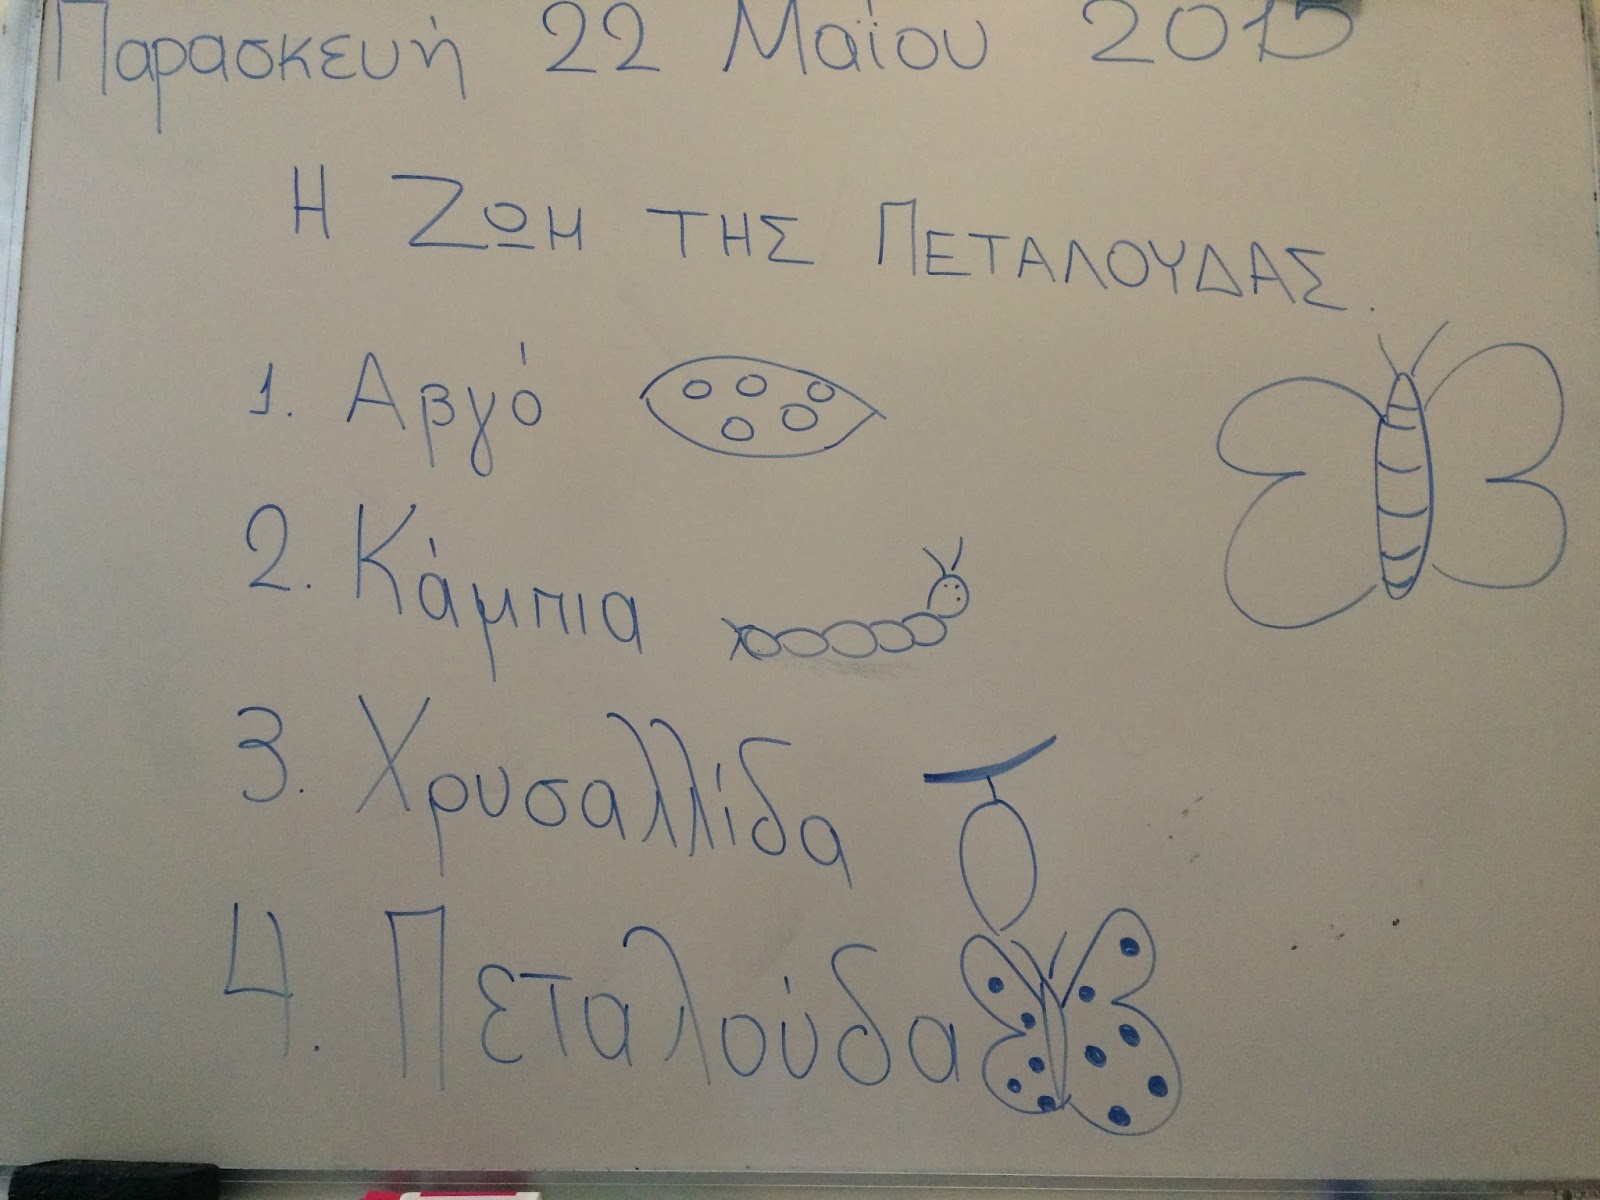 Παρασκευή 22 Μαΐου 2015
Η ΖΩΗ ΤΗΣ ΠΕΤΑΛΟΥΔΑΣ.
1. Αβγό
2. Κάμπια
3. Χρυσαλλίδα
4. Πεταλούδα